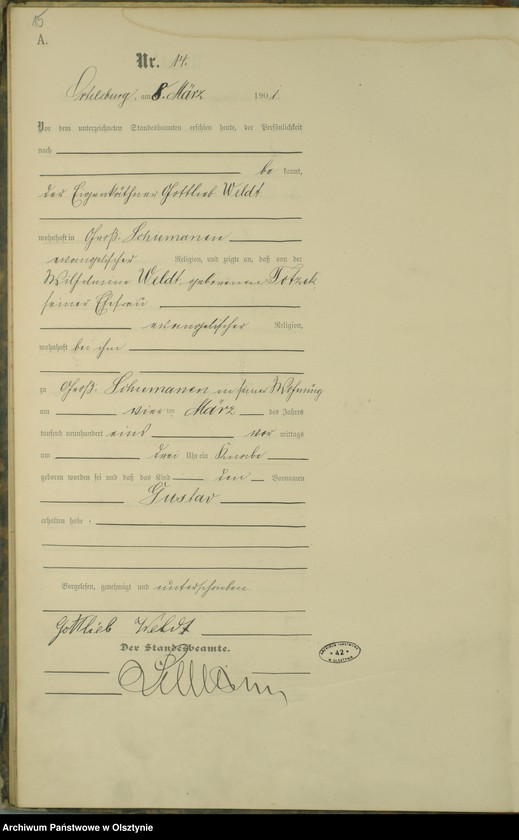 15
A.
Nr. 14.
Ortelsburg, am 8. März 1901.
Vor dem unterzeichneten Standesbeamten erschien heute, der Persönlichkeit
nach
be kannt,
der Eigenkäthner Gottlieb Weldt
wohnhaft in Groß. Schiemanen
evangelischer Religion, und zeigte an, daß von der
Wilhelmine Weldt geborenen Totzek
seiner Ehefrau
evangelischer Religion,
wohnhaft bei ihm
zu Groß. Schiemanen in seiner Wohnung
am vier ten März des Jahres
tausend neunhundert eins vor mittags
um drei Uhr ein Knabe
geboren worden sei und daß das Kind den Vornamen
Gustav
erhalten habe.
Vorgelesen, genehmigt und unterschrieben
Gottlieb Weldt
Der Standesbeamte.
ARCHIWUM PAŃSTWOWE
* 42 *
W OLSZTYNIE
Archiwum Państwowe w Olsztynie